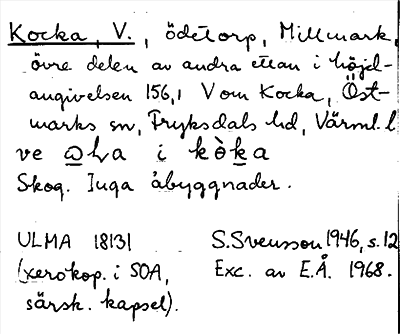 Kocka, V., ödetorp, Millmark,
övre delen av andra ettan i höjd-
angivelsen 156,1 V om Kocka, Öst-
marks sn, Fryksdals hd, Värml. l
ve i kòka
Skog. Inga åbyggnader.
ULMA 18131 S. Svensson 1946, s. 12
(xerokop. i SOA, Exc. av E.Å. 1968.
särsk. kapsel).